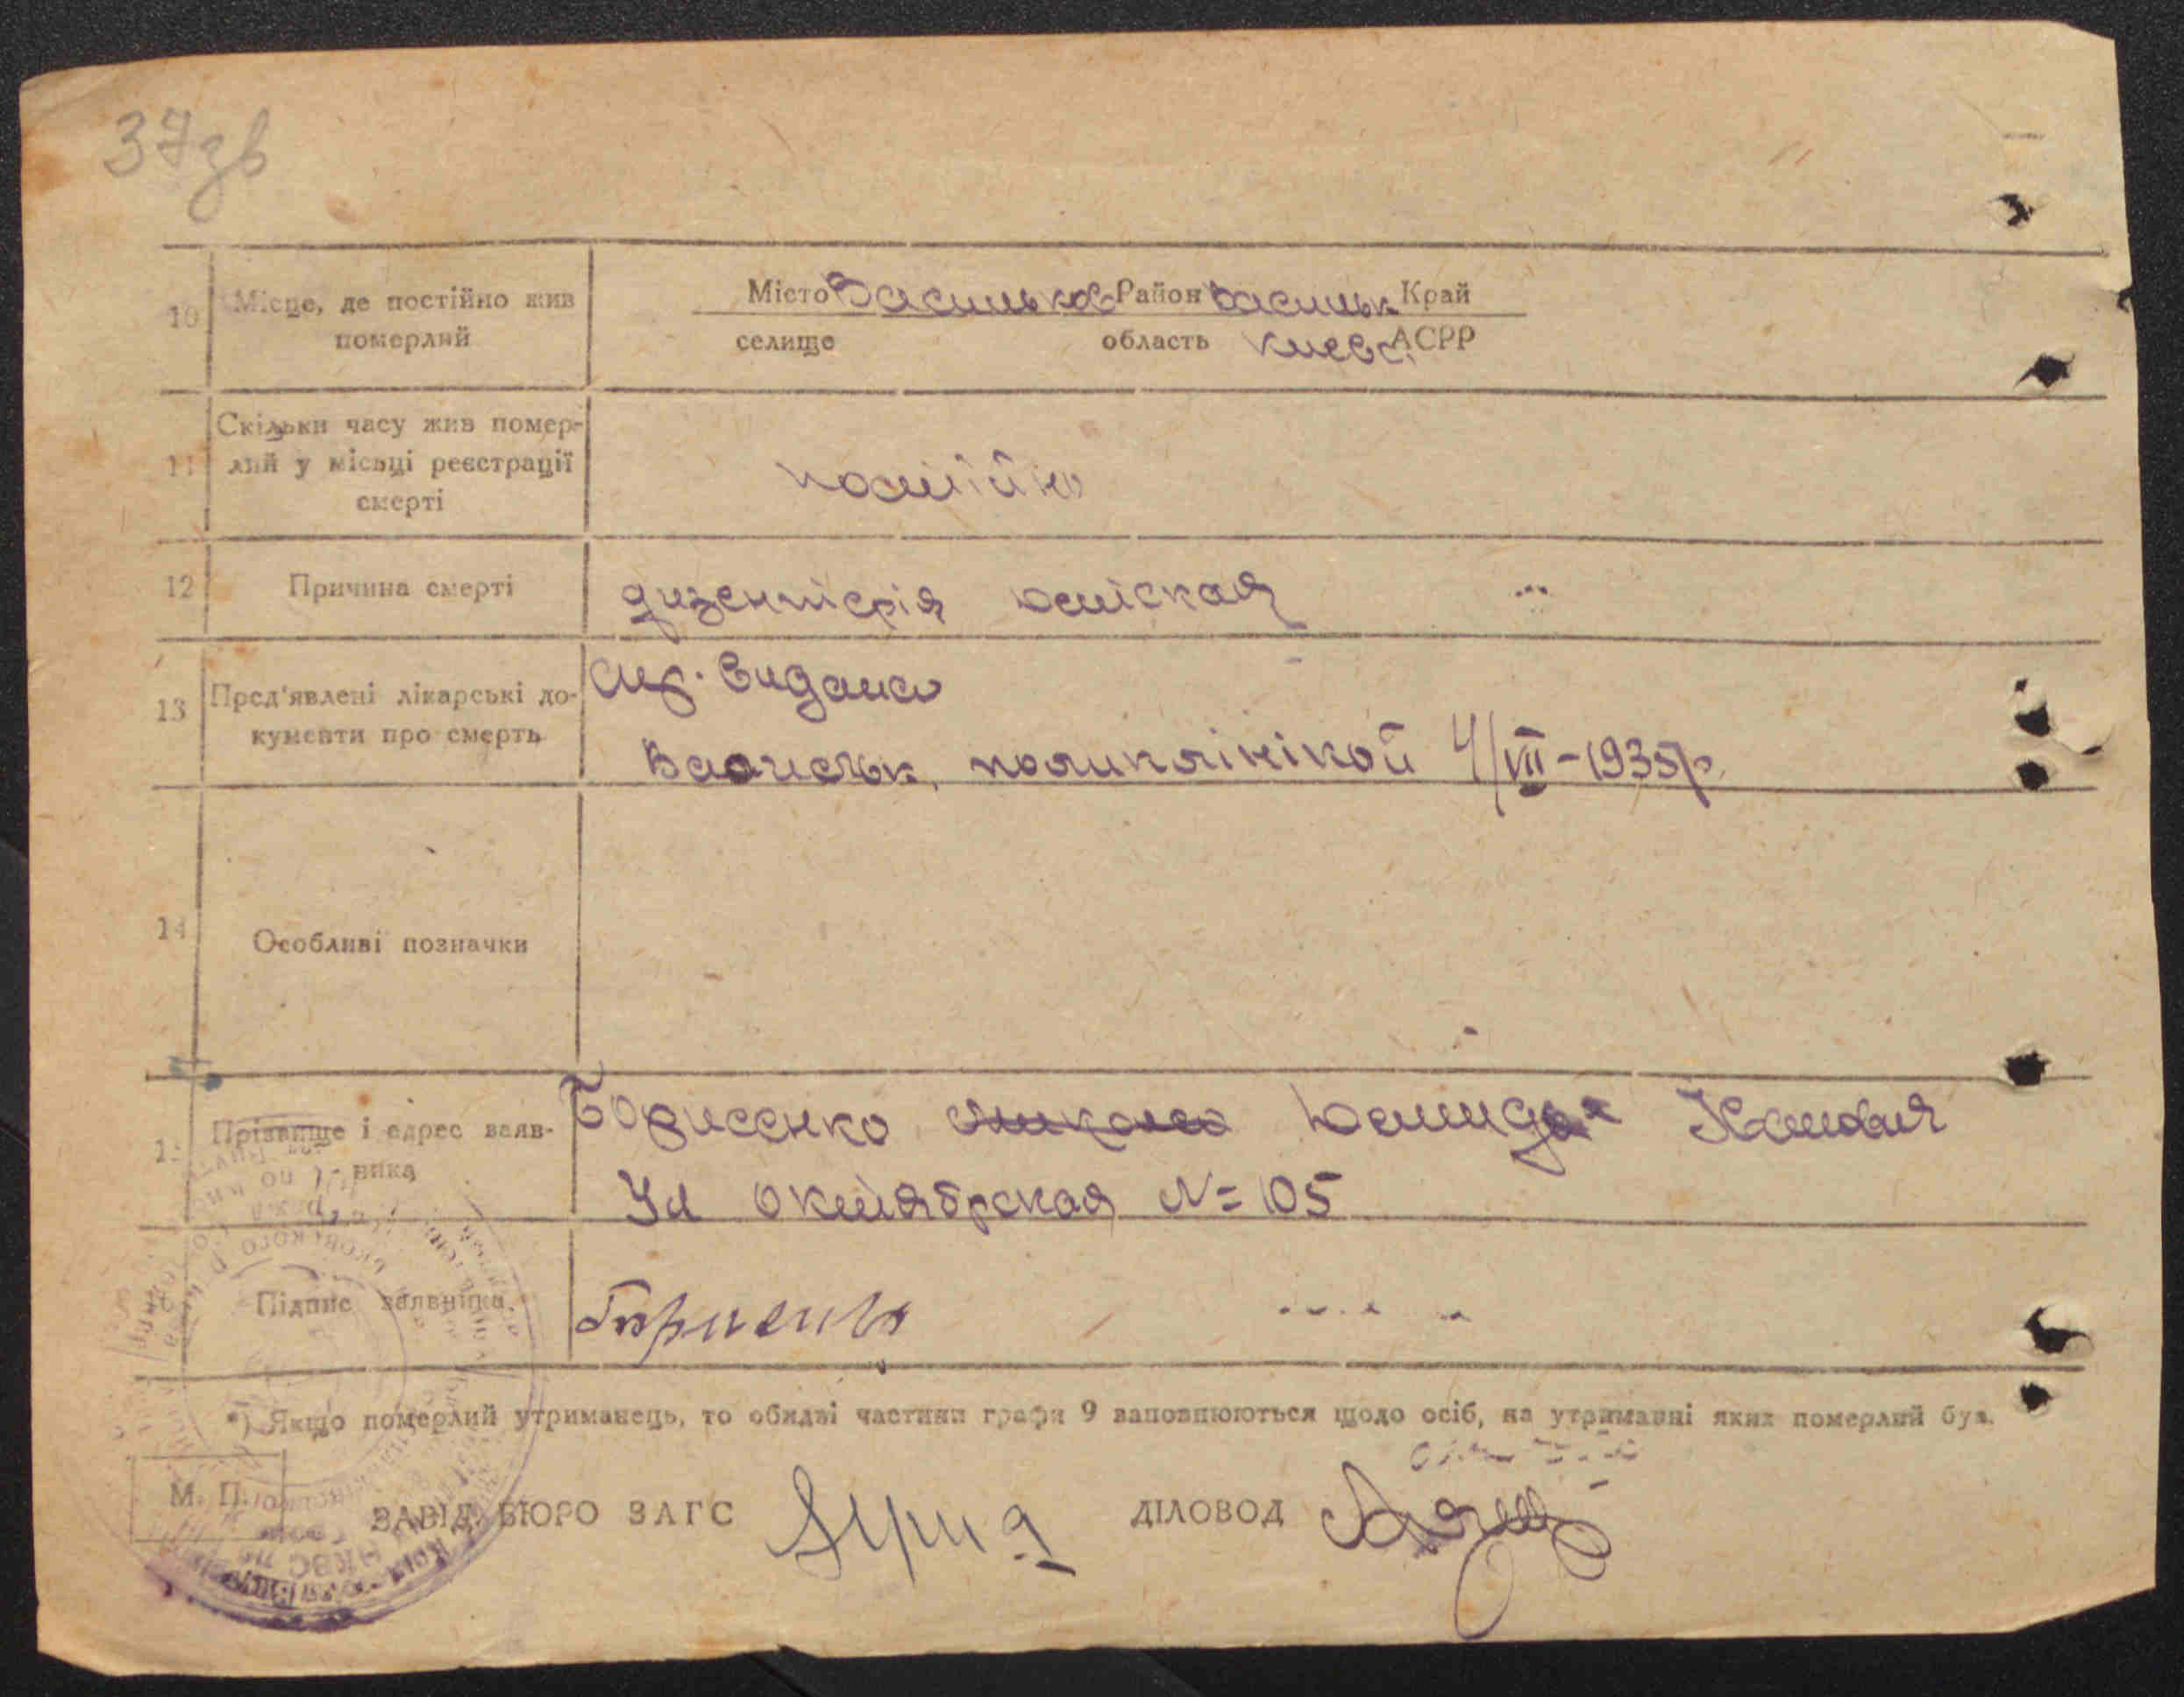 37зв
10 Місце, де постійно жив померлий
Місто Васильков Район Васильк Край
селище область Киевс. АСРР
11 Скільки часу жив помер-
лий у місьці реєстрації
смерті
постійно
12 Причина смерті
дизентерія
13 Пред'явлені лікарські до-
кументи про смерть
видано
Васильк. поликлінікой 4/VII-1935р.
14 Особливі позначки
Прізвище і адрес заяв-
вика
Борисенко
Ул Октябрская №105
Підпис заявника
Борисенко
*) Якщо померлий утриманець, то обидві частини графи 9 заповнюються щодо осіб, на утриманні яких померлий був.
М. П.
ЗАВІД. БЮРО ЗАГС ДІЛОВОД